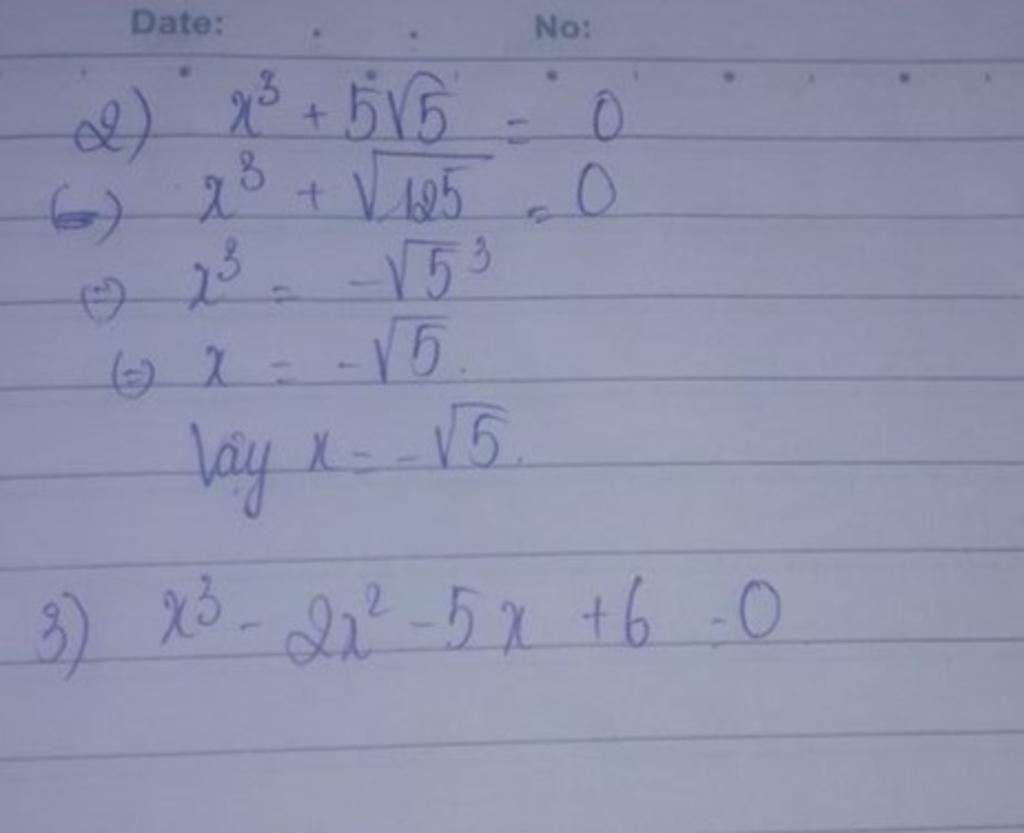 Date: . . No:
2) x³ + 5√5 = 0
(=) x³ + √125 = 0
(=) x³ = -√5³
(=) x = -√5.
Vậy x = -√5.
3) x³ - 2x² - 5x + 6 = 0